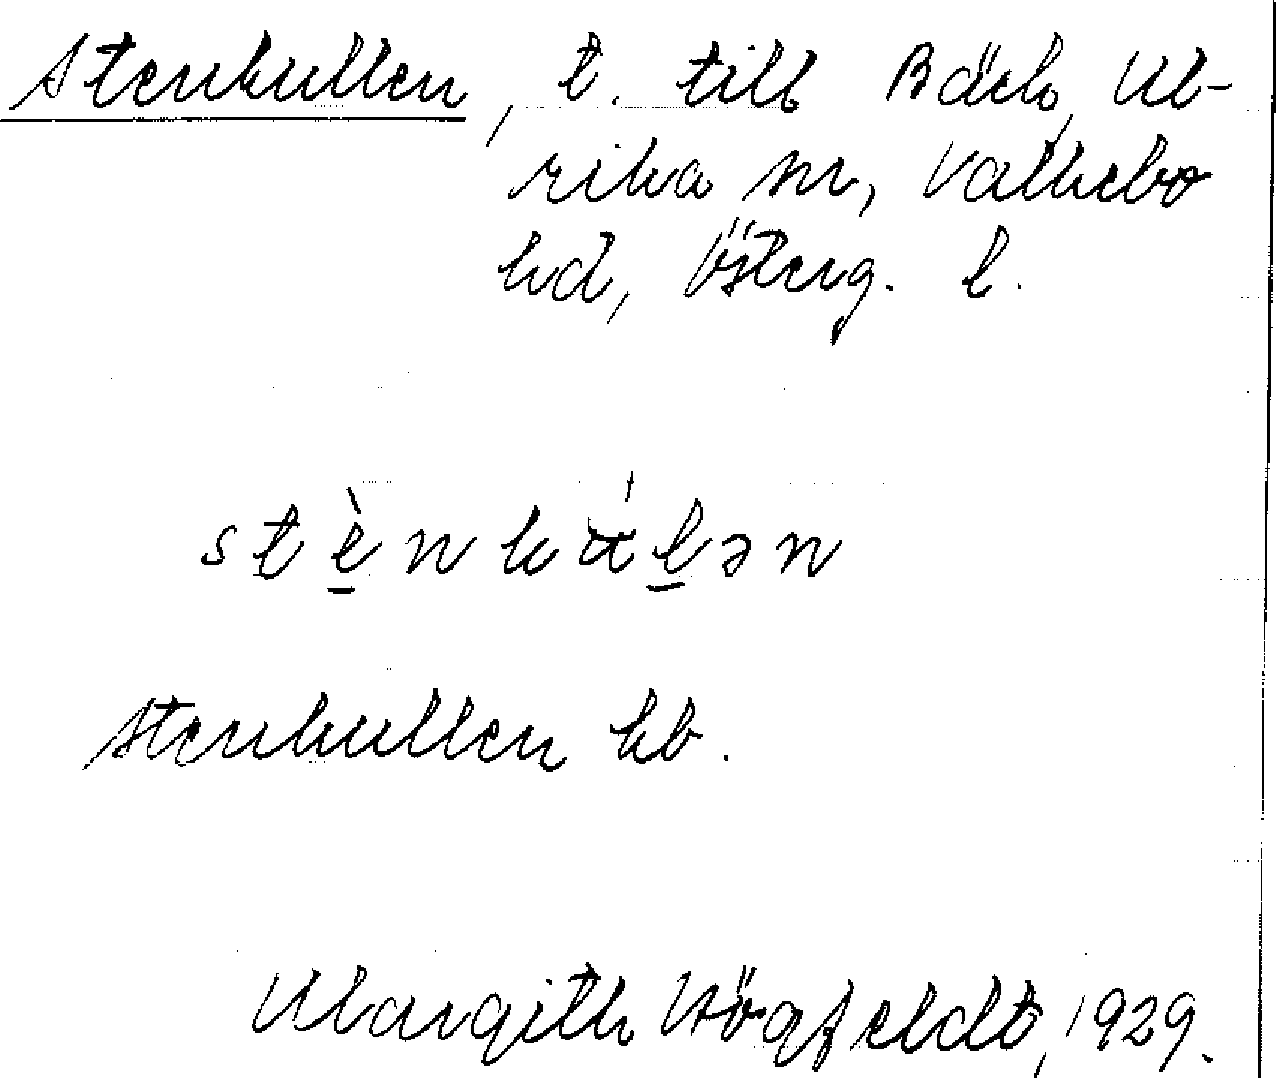 Stenkullen, t. till Bäck, Ul-
rika sn, Valkebo
hd, Österg. l.
stènkúlən
Stenkullen kb.
Margith Högfeldt, 1929.